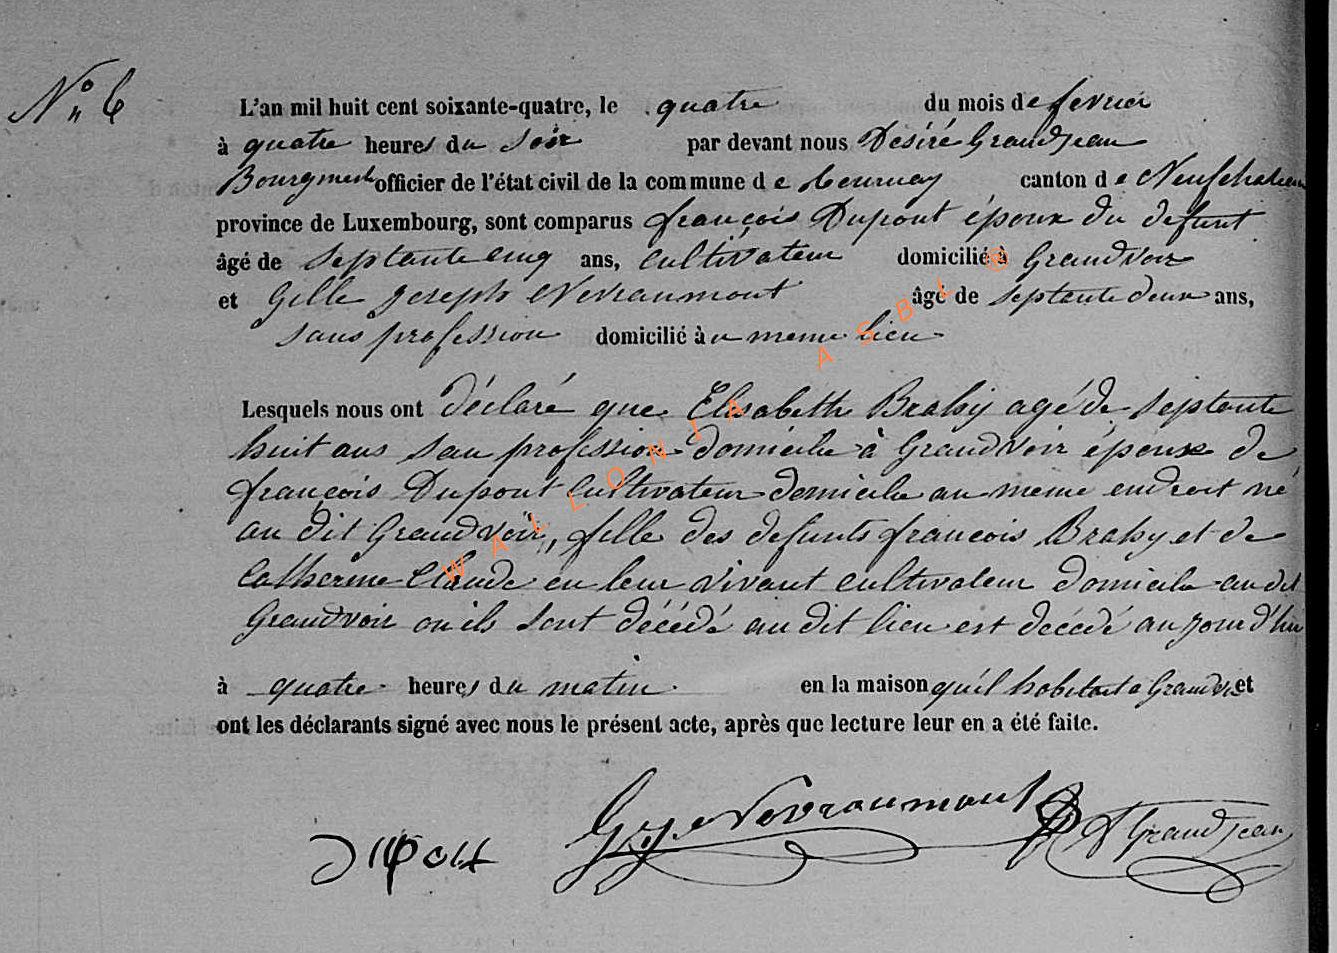 N° 6
L'an mil huit cent soixante-quatre, le quatre du mois de fevrier
à quatre heures du soir par devant nous Désiré Grandjean
Bourgmest officier de l'état civil de la commune de Tournay canton de Neufchateau
province de Luxembourg, sont comparus françois Dupont époux du defunt
âgé de septante cinq ans, cultivateur domicilié à Grandvoir
et Gille Joseph Nevraumont âgé de septante deux ans,
sans profession domicilié au meme lieu
Lesquels nous ont déclaré que Elisabeth Brahy agé de septante
huit ans san profession domicile à Grandvoir épouse de
françois Dupont cultivateur domicile au meme endroit né
au dit Grandvoir, fille des defunts françois Brahy et de
Catherine Claude en leur vivant cultivateur domicile au dit
Grandvoir ou ils sont décédé au dit lieu est décédé aujourd'hui
à quatre heures du matin en la maison qu'il habitait a Grandvoir et
ont les déclarants signé avec nous le présent acte, après que lecture leur en a été faite.
Dupont G. J. Nevraumont D Grandjean
WALLONIA ASBL ©